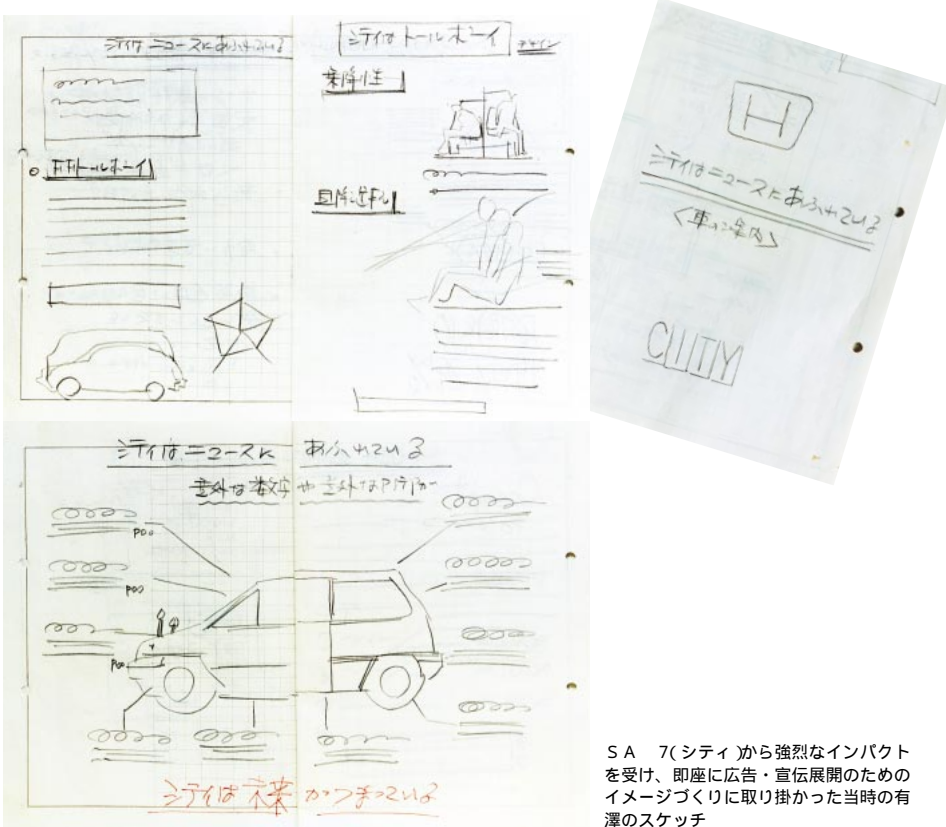 シティはニュースにあふれている
シティはトールボーイ デザイン
乗降性
FFトールボーイ
H
シティはニュースにあふれている
CITY
シティはニュースに あふれている
意外な数字や意外なアイデアが
P00
P00
P00
シティは未来がつまっている
SA 7(シティ)から強烈なインパクト
を受け、即座に広告・宣伝展開のための
イメージづくりに取り掛かった当時の有
澤のスケッチ